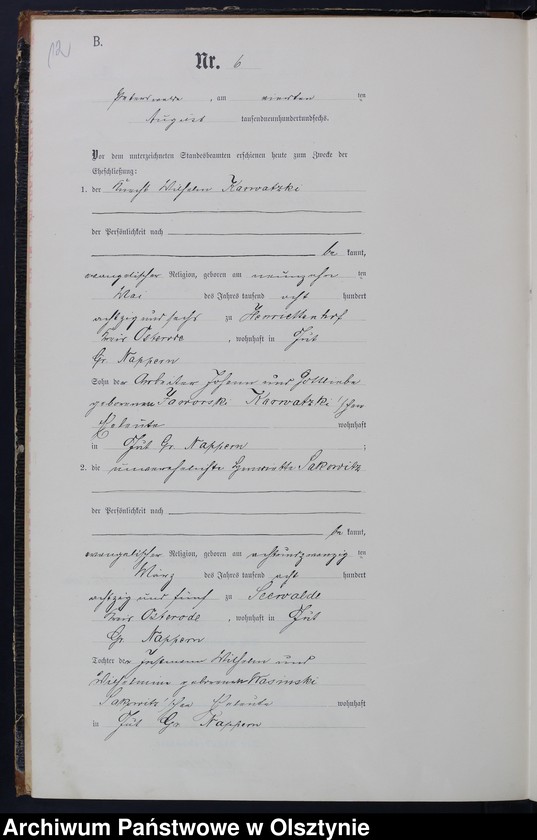 12
B.
Nr. 6
Peterswalde, am vierten ten
August tausendneunhundertundsechs.
Vor dem unterzeichneten Standesbeamten erschienen heute zum Zwecke der
Eheschließung:
1. der Knecht Wilhelm Karwatzki
der Persönlichkeit nach
be kannt,
evangelischer Religion, geboren am neunzehn ten
Mai des Jahres tausend acht hundert
achtzig und sechs zu Henriettenhof
Kreis Osterode, wohnhaft in Gut
Gr. Nappern
Sohn der Arbeiter Johann und Gottliebe
geborenen Karwatzki'schen
Eheleute wohnhaft
in Gut Gr. Nappern ;
2. die unverehelichte Henriette Sakowitz
der Persönlichkeit nach
be kannt,
evangelischer Religion, geboren am achtundzwanzig ten
März des Jahres tausend acht hundert
achtzig und fünf zu Seewalde
Kreis Osterode, wohnhaft in Gut
Gr. Nappern
Tochter der Instmann Wilhelm und
Wilhelmine geborenen
Sakowitz'schen Eheleute wohnhaft
in Gut Gr. Nappern
Archiwum Państwowe w Olsztynie